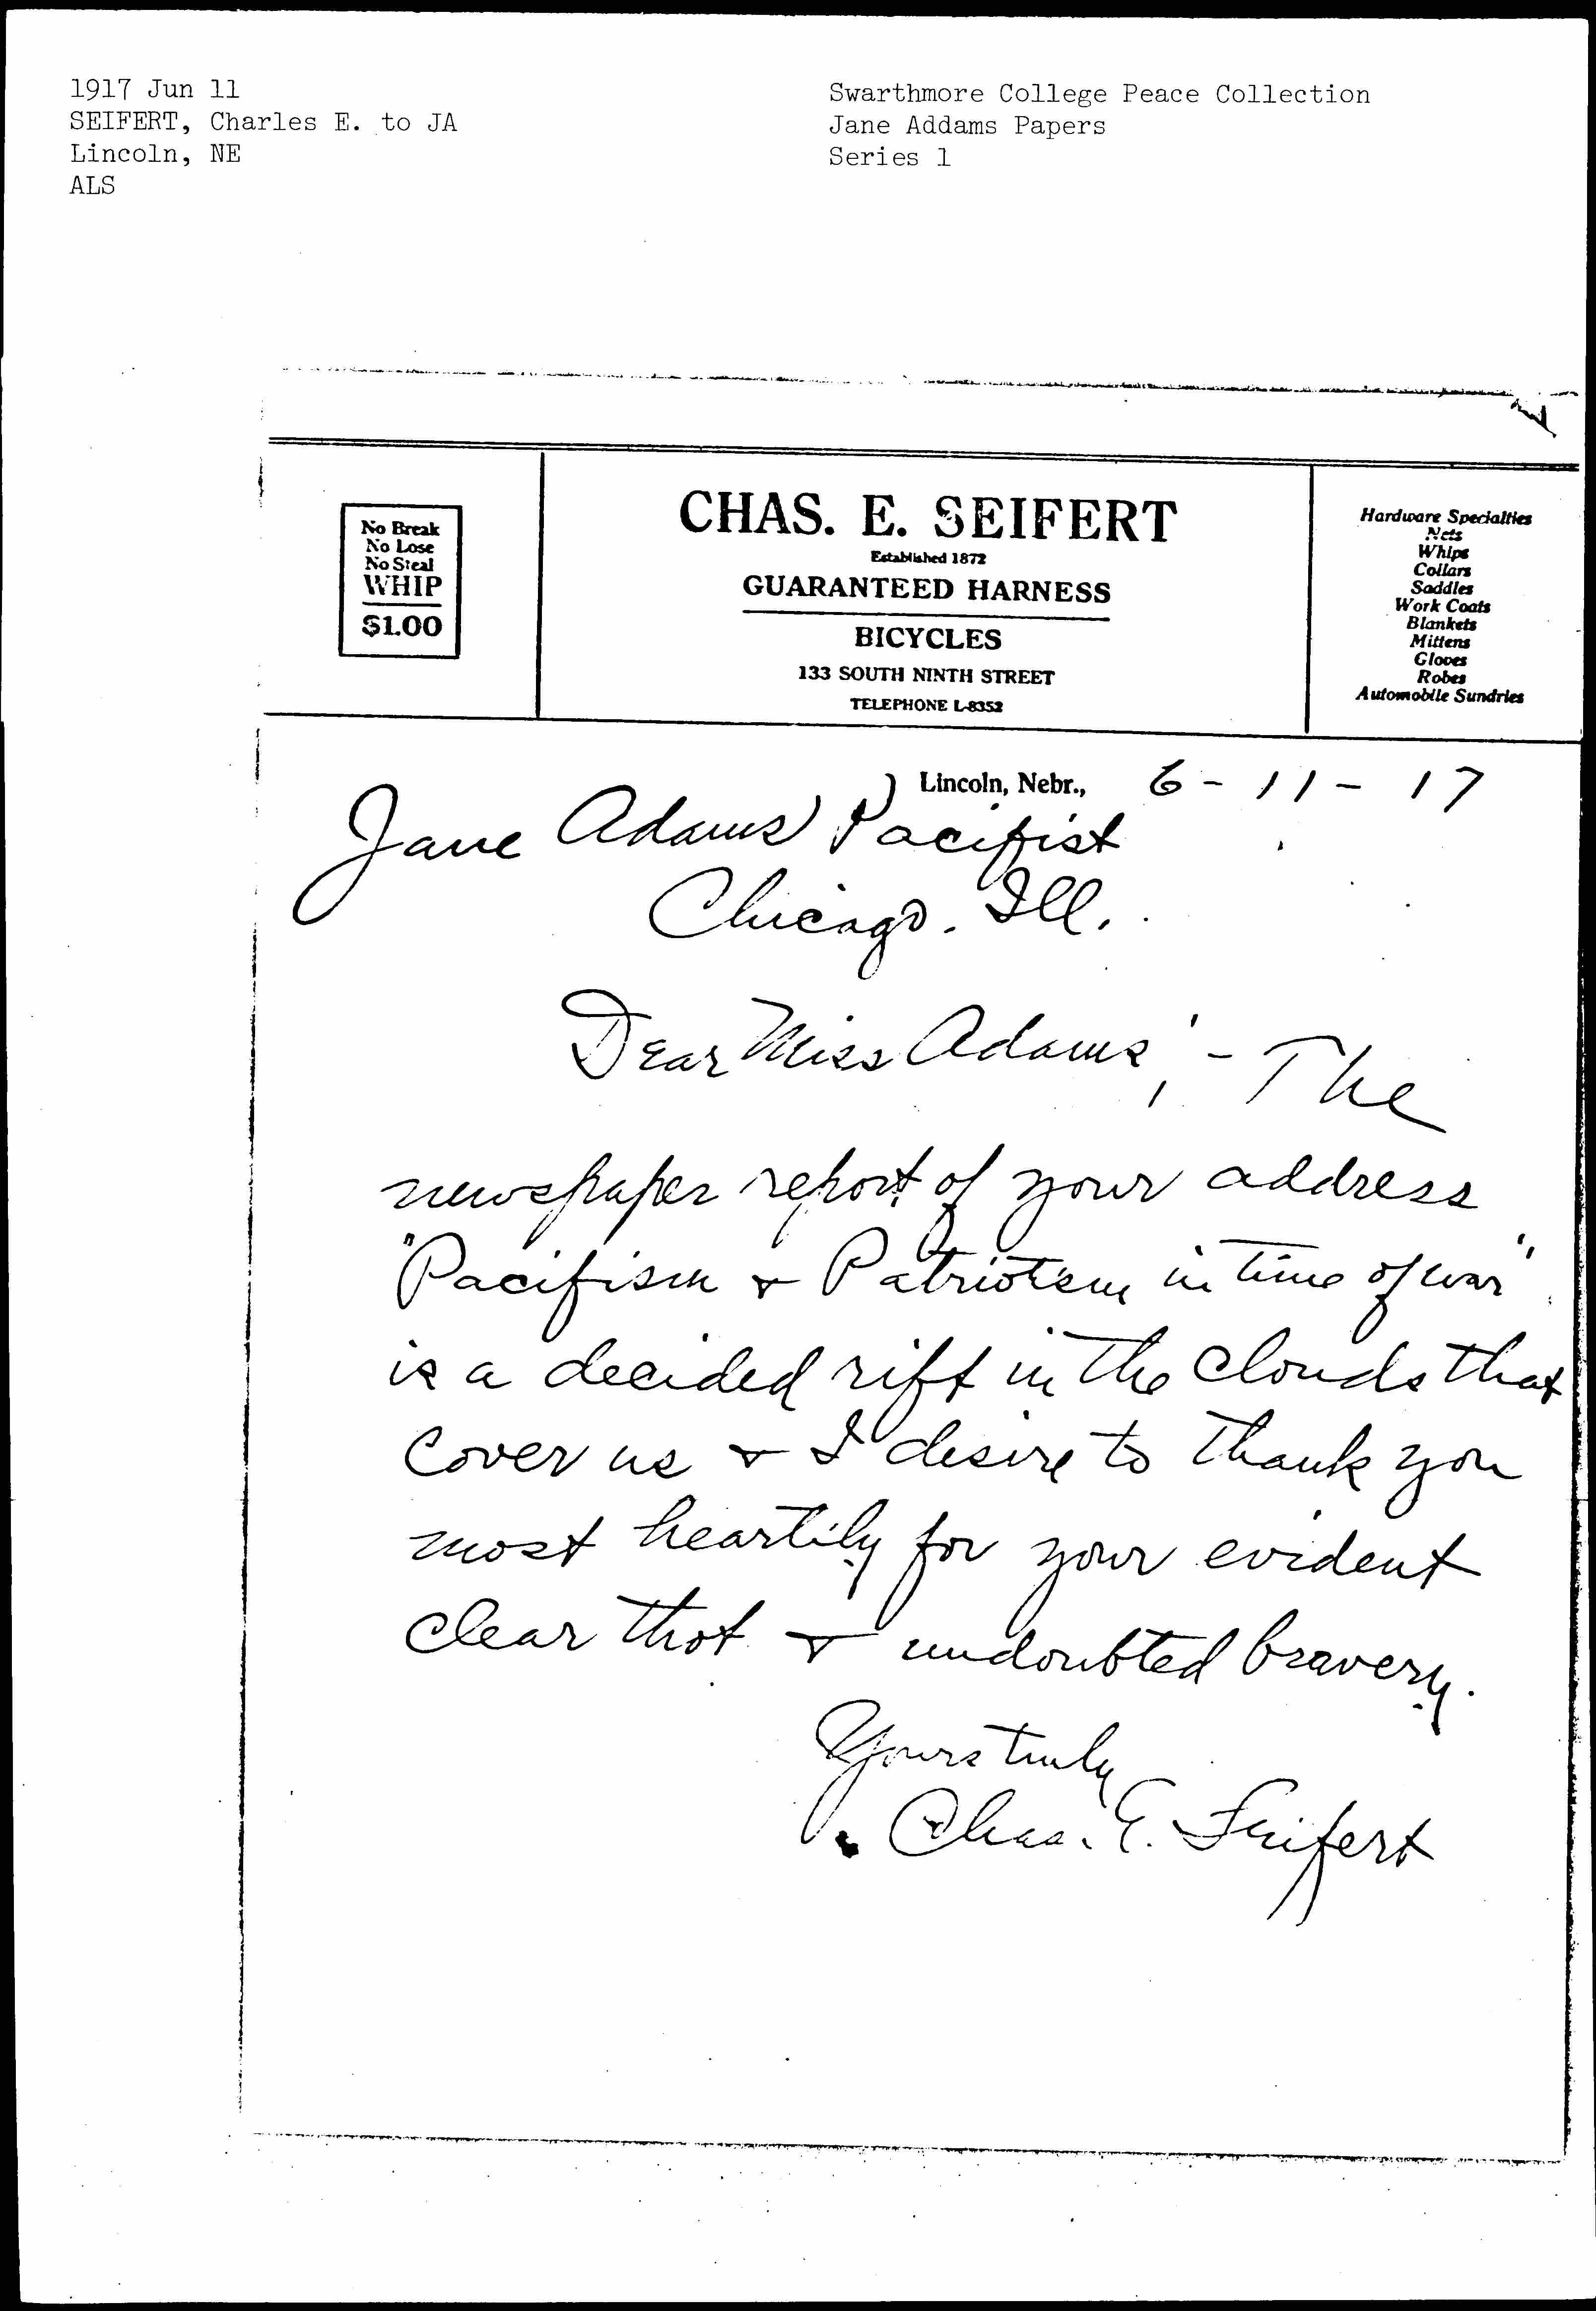 1917 Jun 11
SEIFERT, Charles E. to JA
Lincoln, NE
ALS
Swarthmore College Peace Collection
Jane Addams Papers
Series 1
No Break
No Lose
No Steal
WHIP
$1.00
CHAS. E. SEIFERT
Established 1872
GUARANTEED HARNESS
BICYCLES
133 SOUTH NINTH STREET
TELEPHONE L-8352
Hardware Specialties
Nets
Whips
Collars
Saddles
Work Coats
Blankets
Mittens
Gloves
Robes
Automobile Sundries
Lincoln, Nebr., 6-11-17
Jane Adams Pacifist
Chicago. Ill.
Dear Miss Adams;- The
newspaper report of your address
"Pacifism & Patriotism in time of war"
is a decided rift in the clouds that
cover us & I desire to thank you
most heartily for your evident
clear thot & undoubted bravery.
Yours truly
Chas. E. Seifert